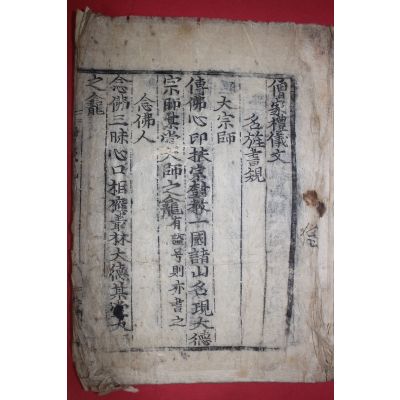 僧家禮儀文
名旌書規
大宗師
傳佛心印扶宗對教一國諸山名現大德
宗師某堂大師之龕有謚号則亦書之
念佛人
念佛三昧心口相應叢林大德某堂大
之龕